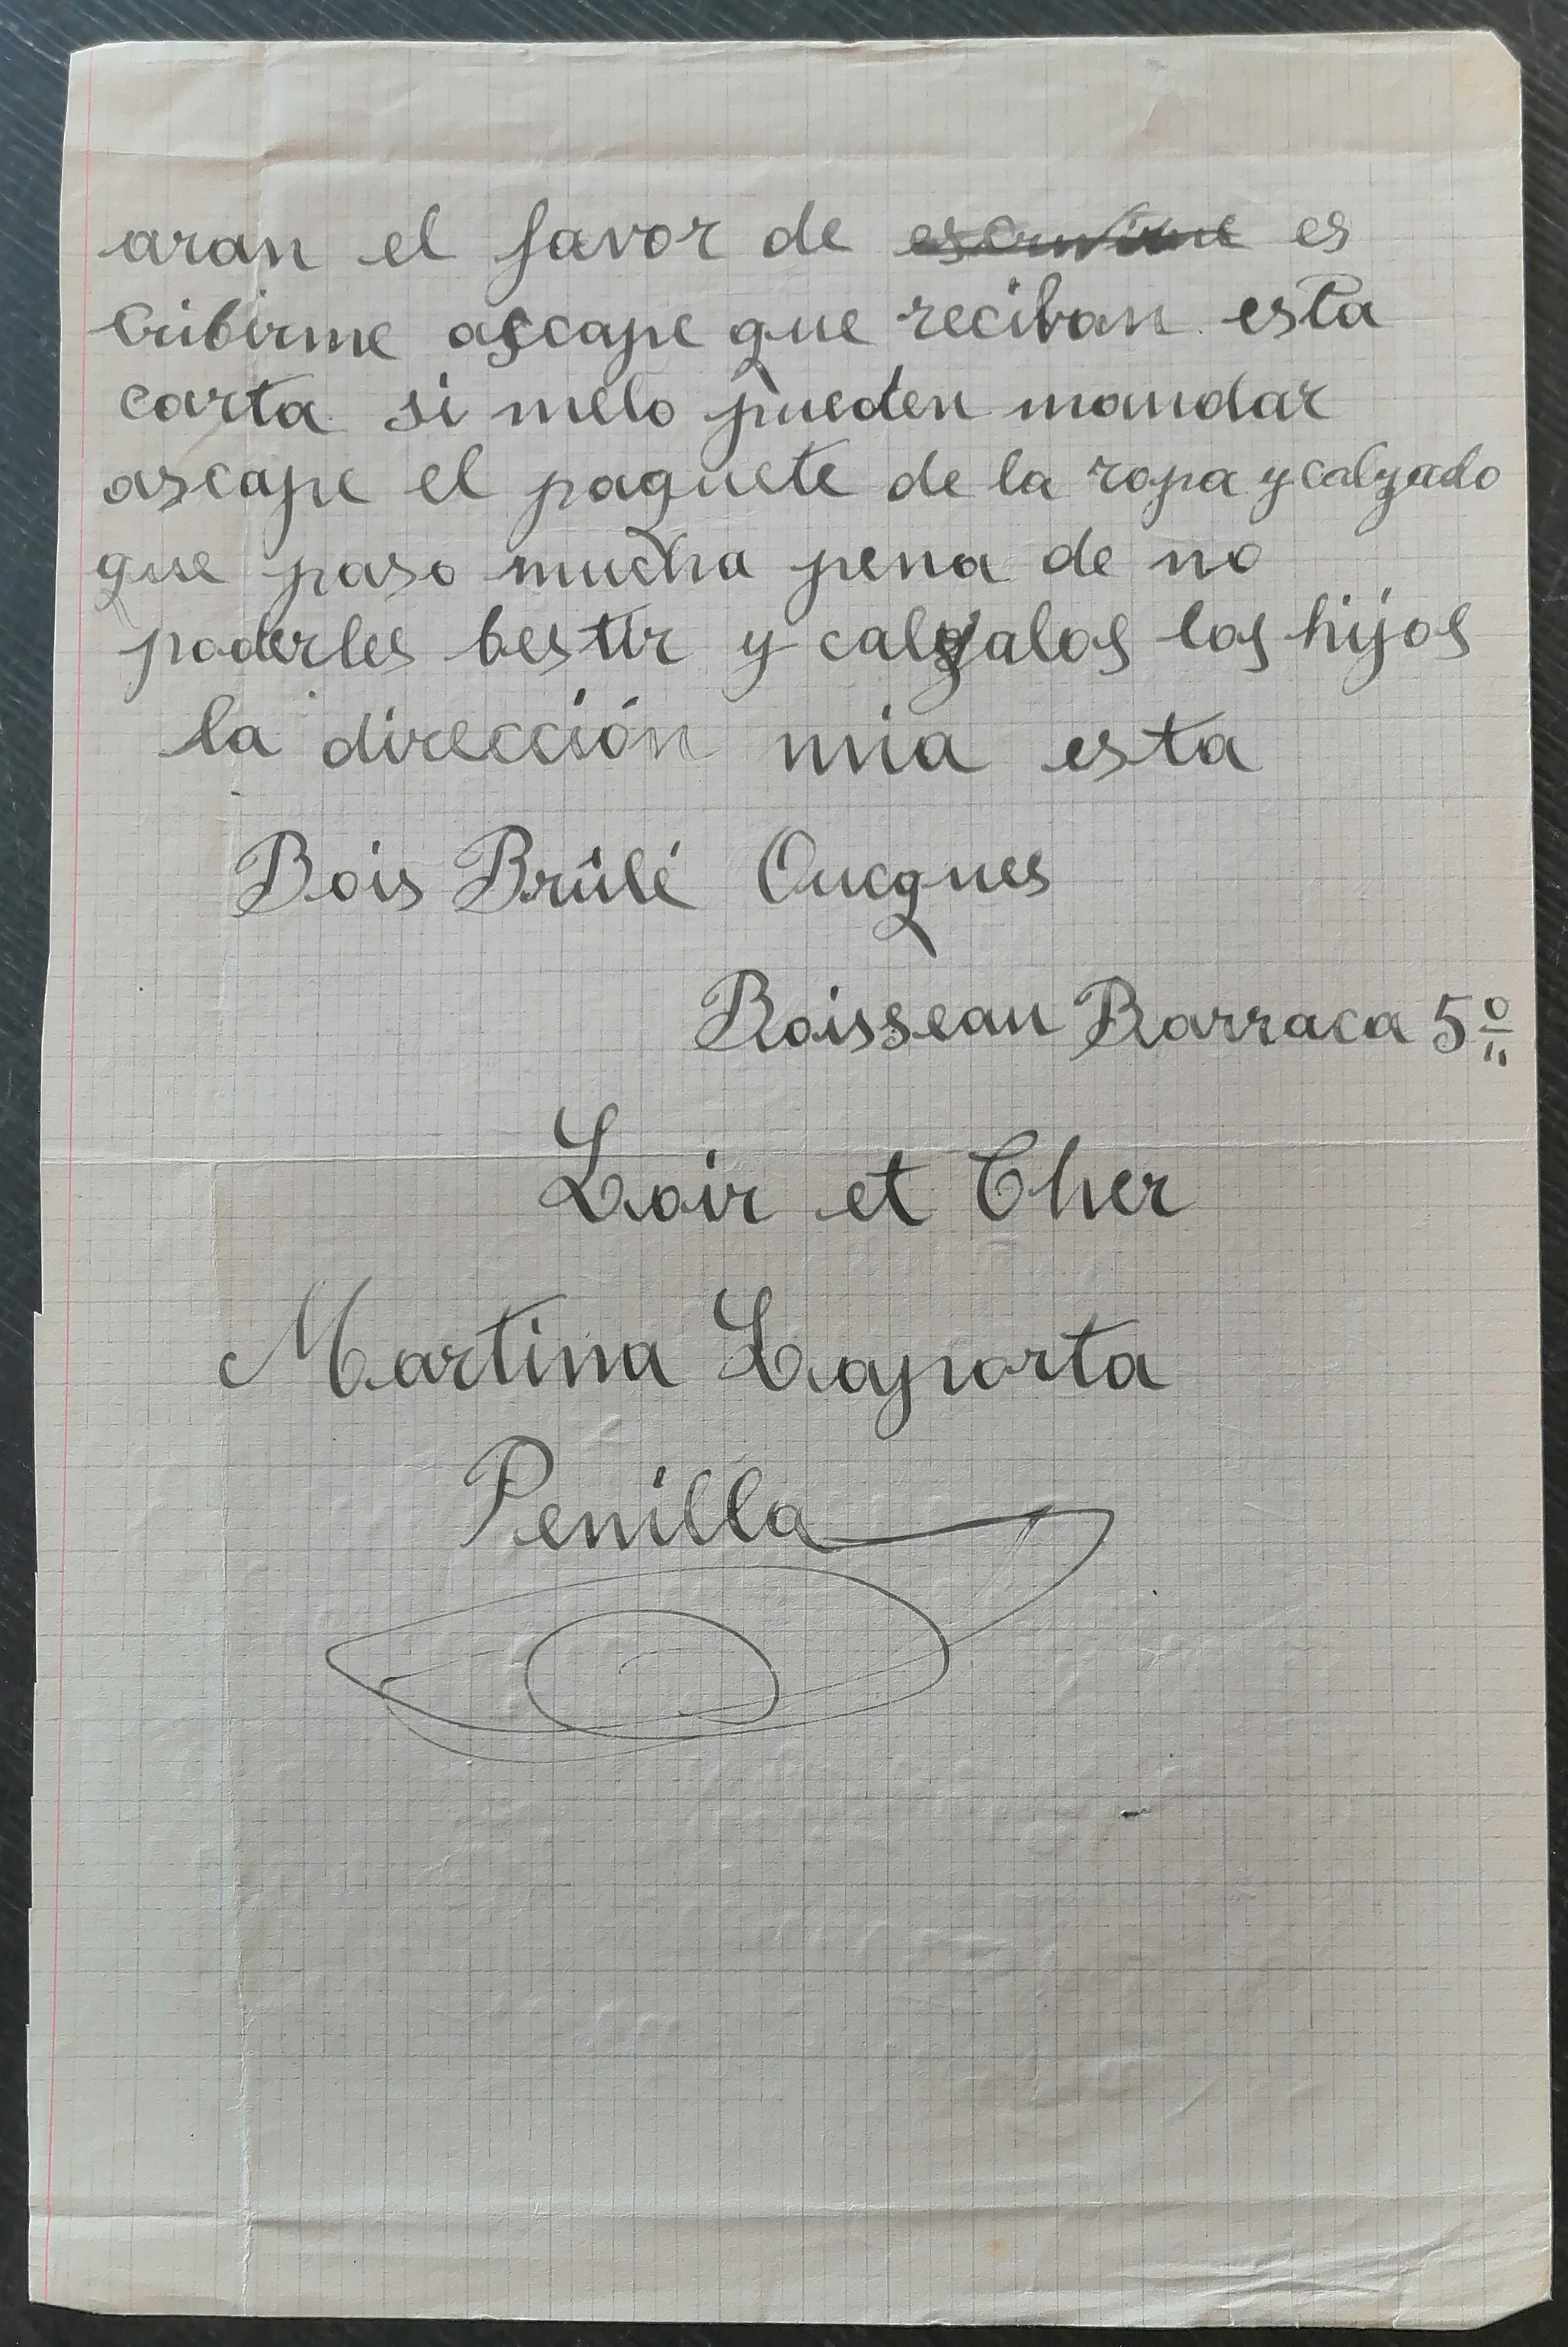 aran el favor de es
cribirme ascape que reciban esta
carta si melo pueden mandar
ascape el paquete de la ropa y calzado
que paso mucha pena de no
poderles bestir y calzalos los hijos
la dirección mia esta
Bois Brûlé Oucques
Boisseau Barraca 5º
Loir et Cher
Martina Laporta
Penilla